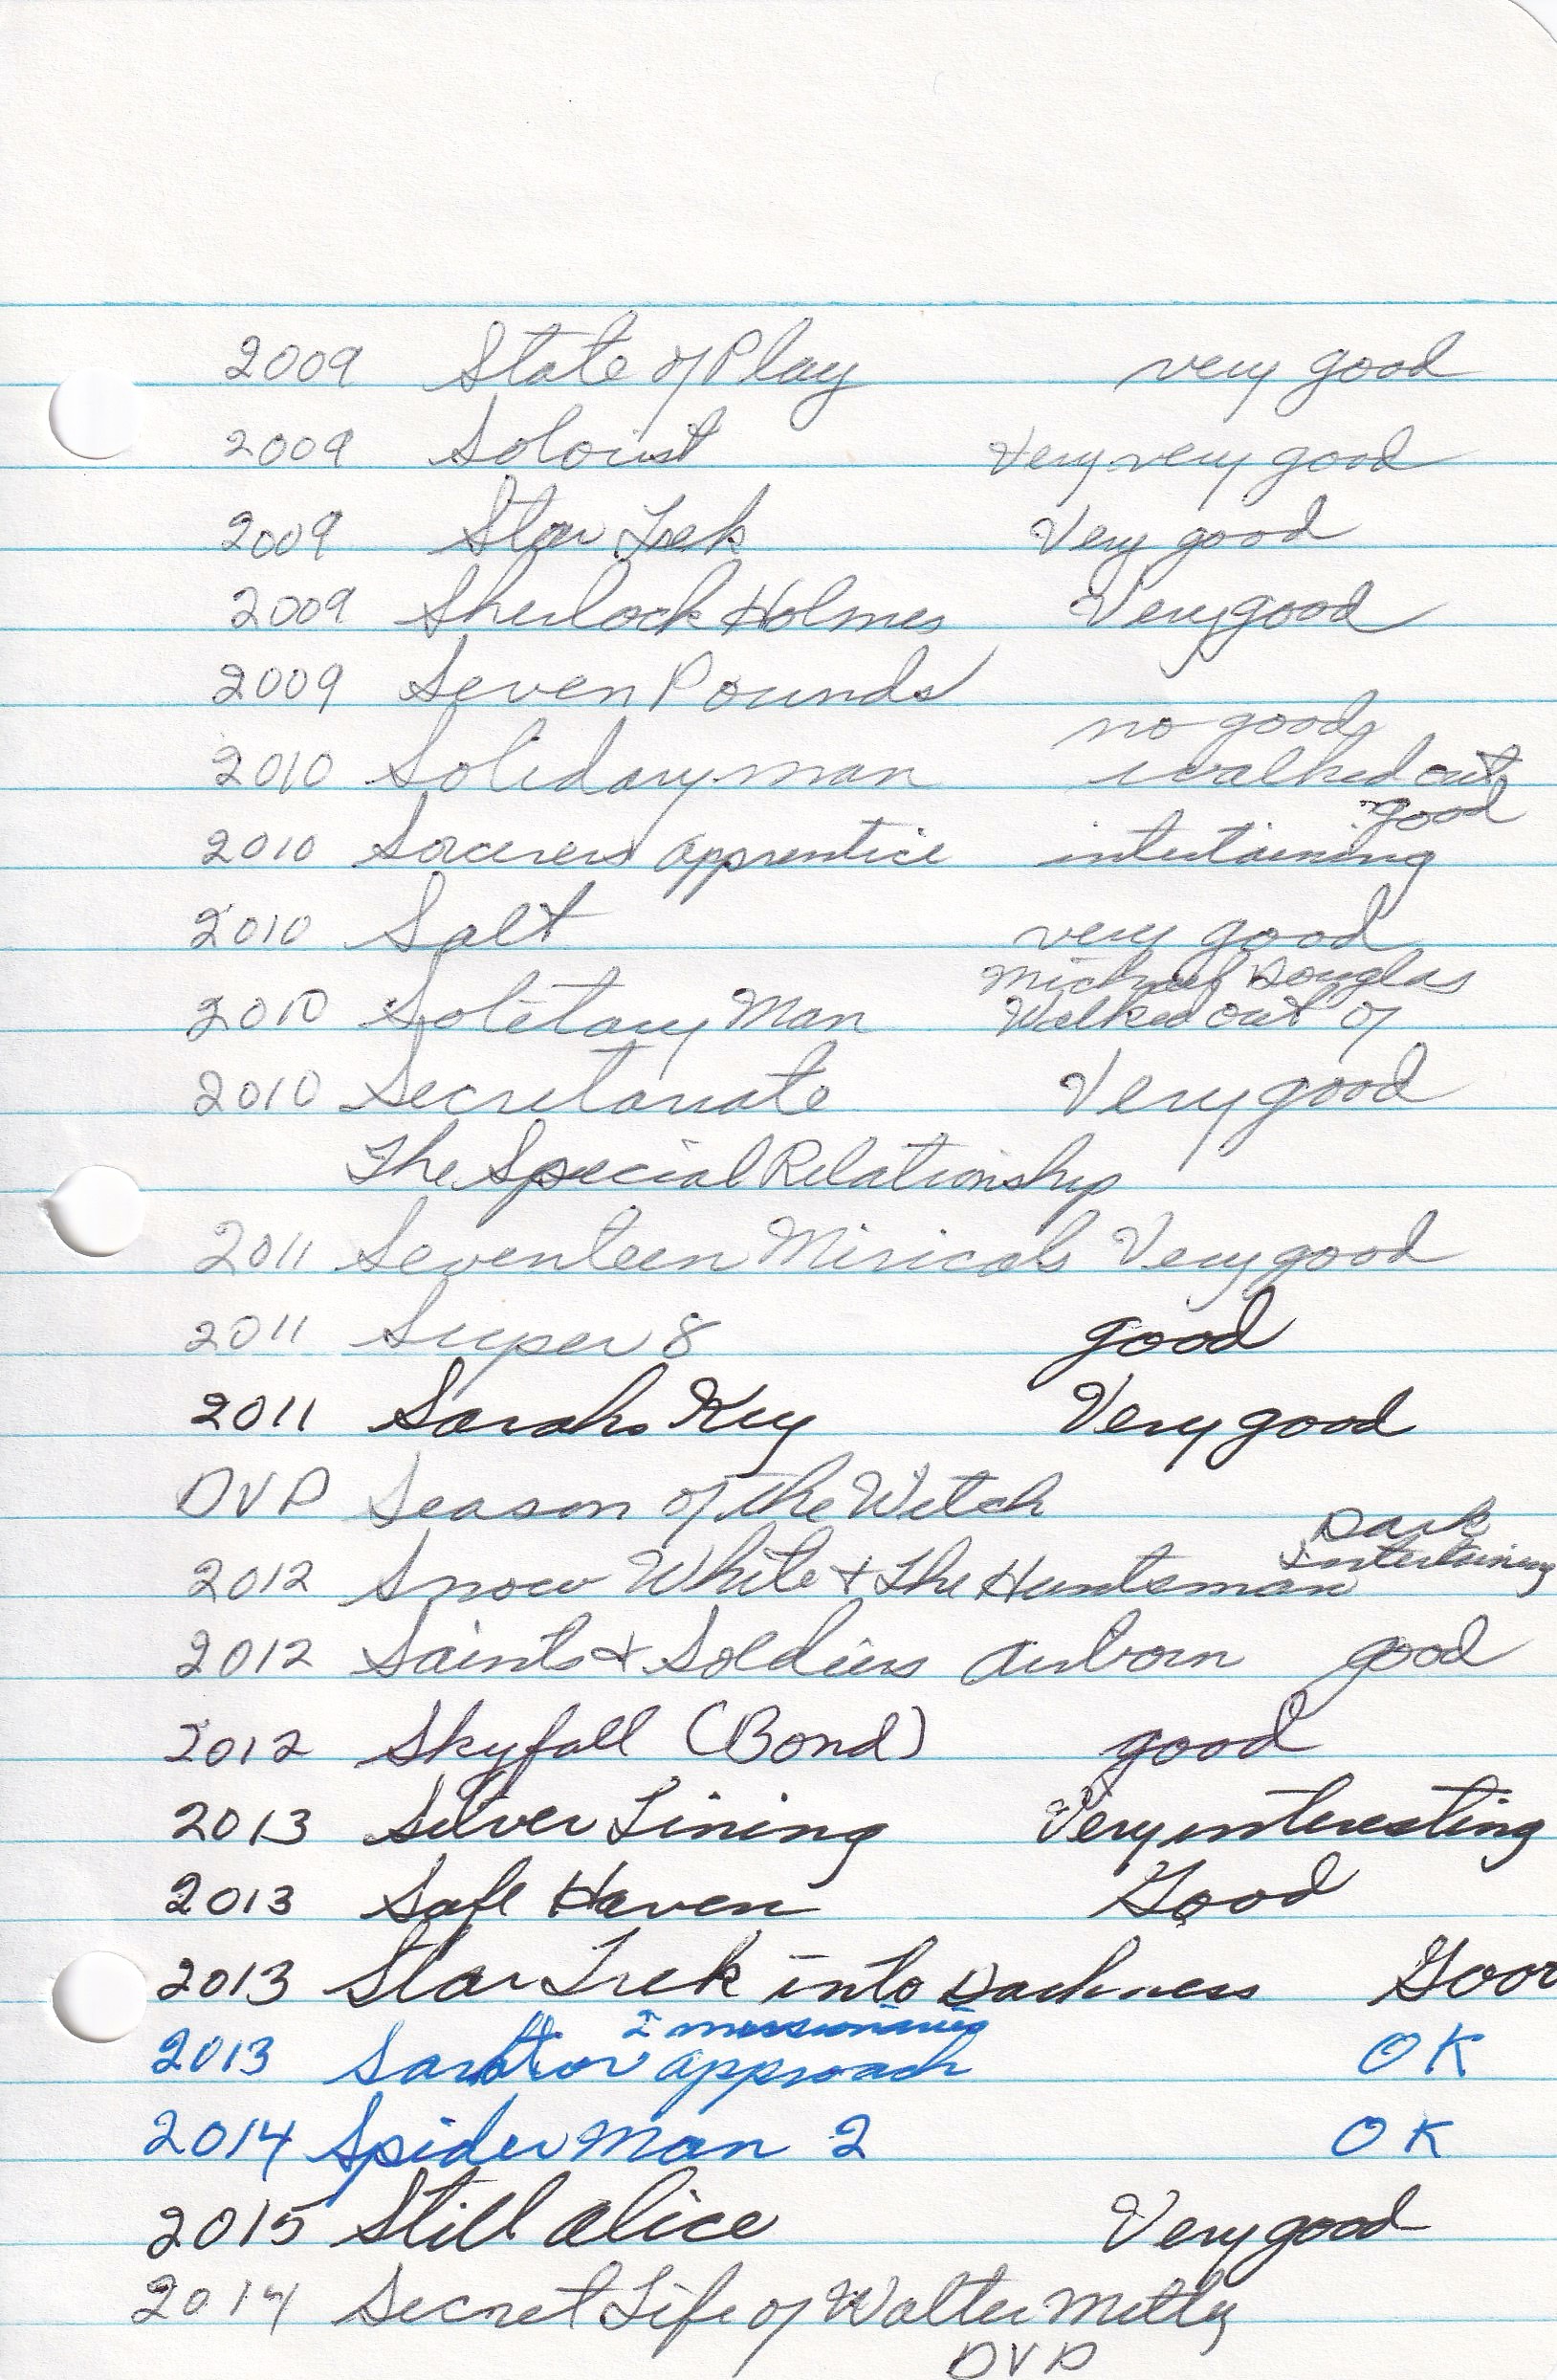 2009 State of Play very good
2009 Soloist Very very good
2009 Star Trek Very good
2009 Sherlock Holmes Very good
2009 Seven Pounds
no good
2010 Solidary man walked out
good
2010 Sorcerers apprentice intertaining
2010 Salt very good
Michael Douglas
2010 Solitary Man Walked out of
2010 Secretariate Very good
The Special Relationship
2011 Seventeen Miricals Very good
2011 Super 8 good
2011 Sarahs Key Very good
DVD Season of the Witch
Dark
2012 Snow White & The Huntsman Intertaining
2012 Saints & Soldiers airborn good
2012 Skyfall (Bond) good
2013 Silver Lining Very interesting
2013 Safe Haven Good
2013 Star Trek into Darkness Good
2 missionaries
2013 approach OK
2014 Spider Man 2 OK
2015 Still alice Very good
2014 Secret Life of Walter Mitty
DVD